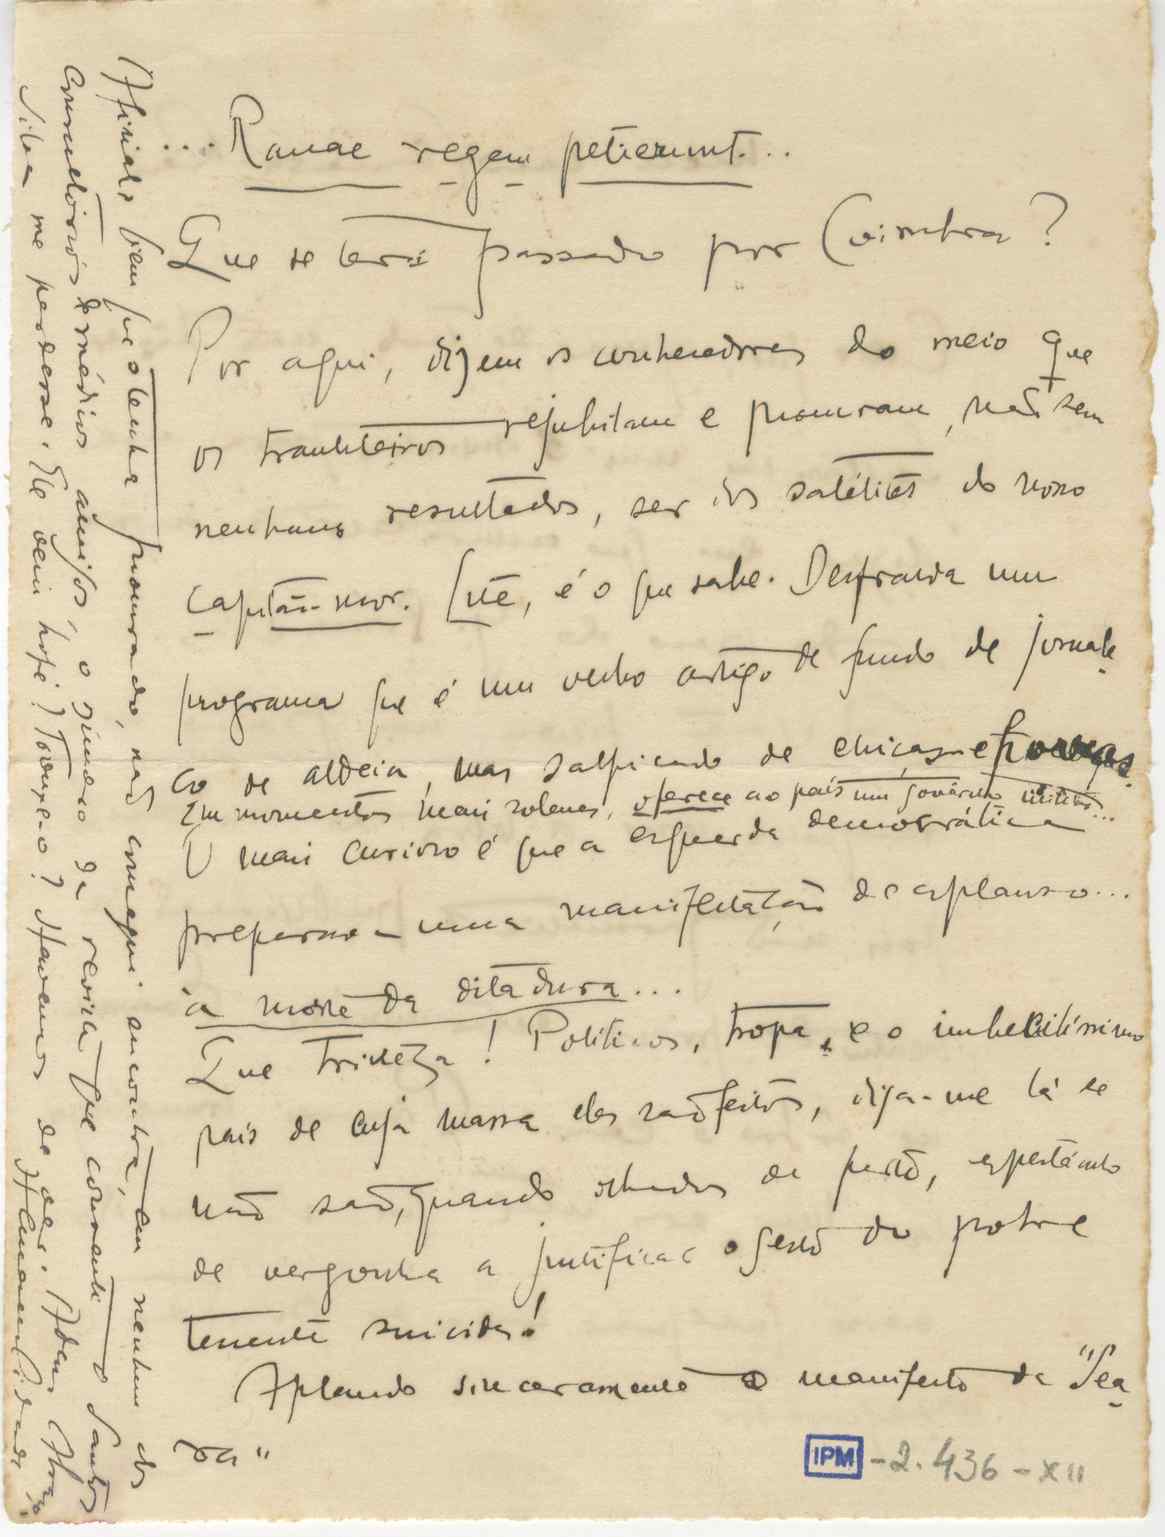 ... Ranae regem petierunt...
Que se terá passado por Coimbra?
Por aqui, dizem os conhecedores do meio que
os trauliteiros rejubilam e procuram, não sem
nenhuns resultados, ser os satélites do nosso
capitão-mor. Êste, é o que sabe. Desfralda um
programa que é um velho artigo de fundo de jornale-
co de aldeia, mas salpicado de
Em momentos mais solenes, oferece ao país um govêrno
O mais curioso é que a esquerda democrática
preparava uma manifestação de aplauso...
à morte da ditadura...
Que tristeza! Politicos, tropa, e o imbecilíssimo
país de cuja massa eles são feitos, diga-me lá se
não são, quando olhados de perto, espectáculo
de vergonha a justificar o gesto do pobre
tenente suicida!
Aplaudo sinceramente o manifesto da "Sea-
ra"
Afinal, bem que o tenha procurado, não consegui encontrar, em nenhum dos
consultórios de médicos amigos, o número da revista que consente o Santos
Silva me perdesse. Êle vem hoje? Trouxe-o? Havemos de ver. Adeus. Abraço
IPM - 2.436 - XII